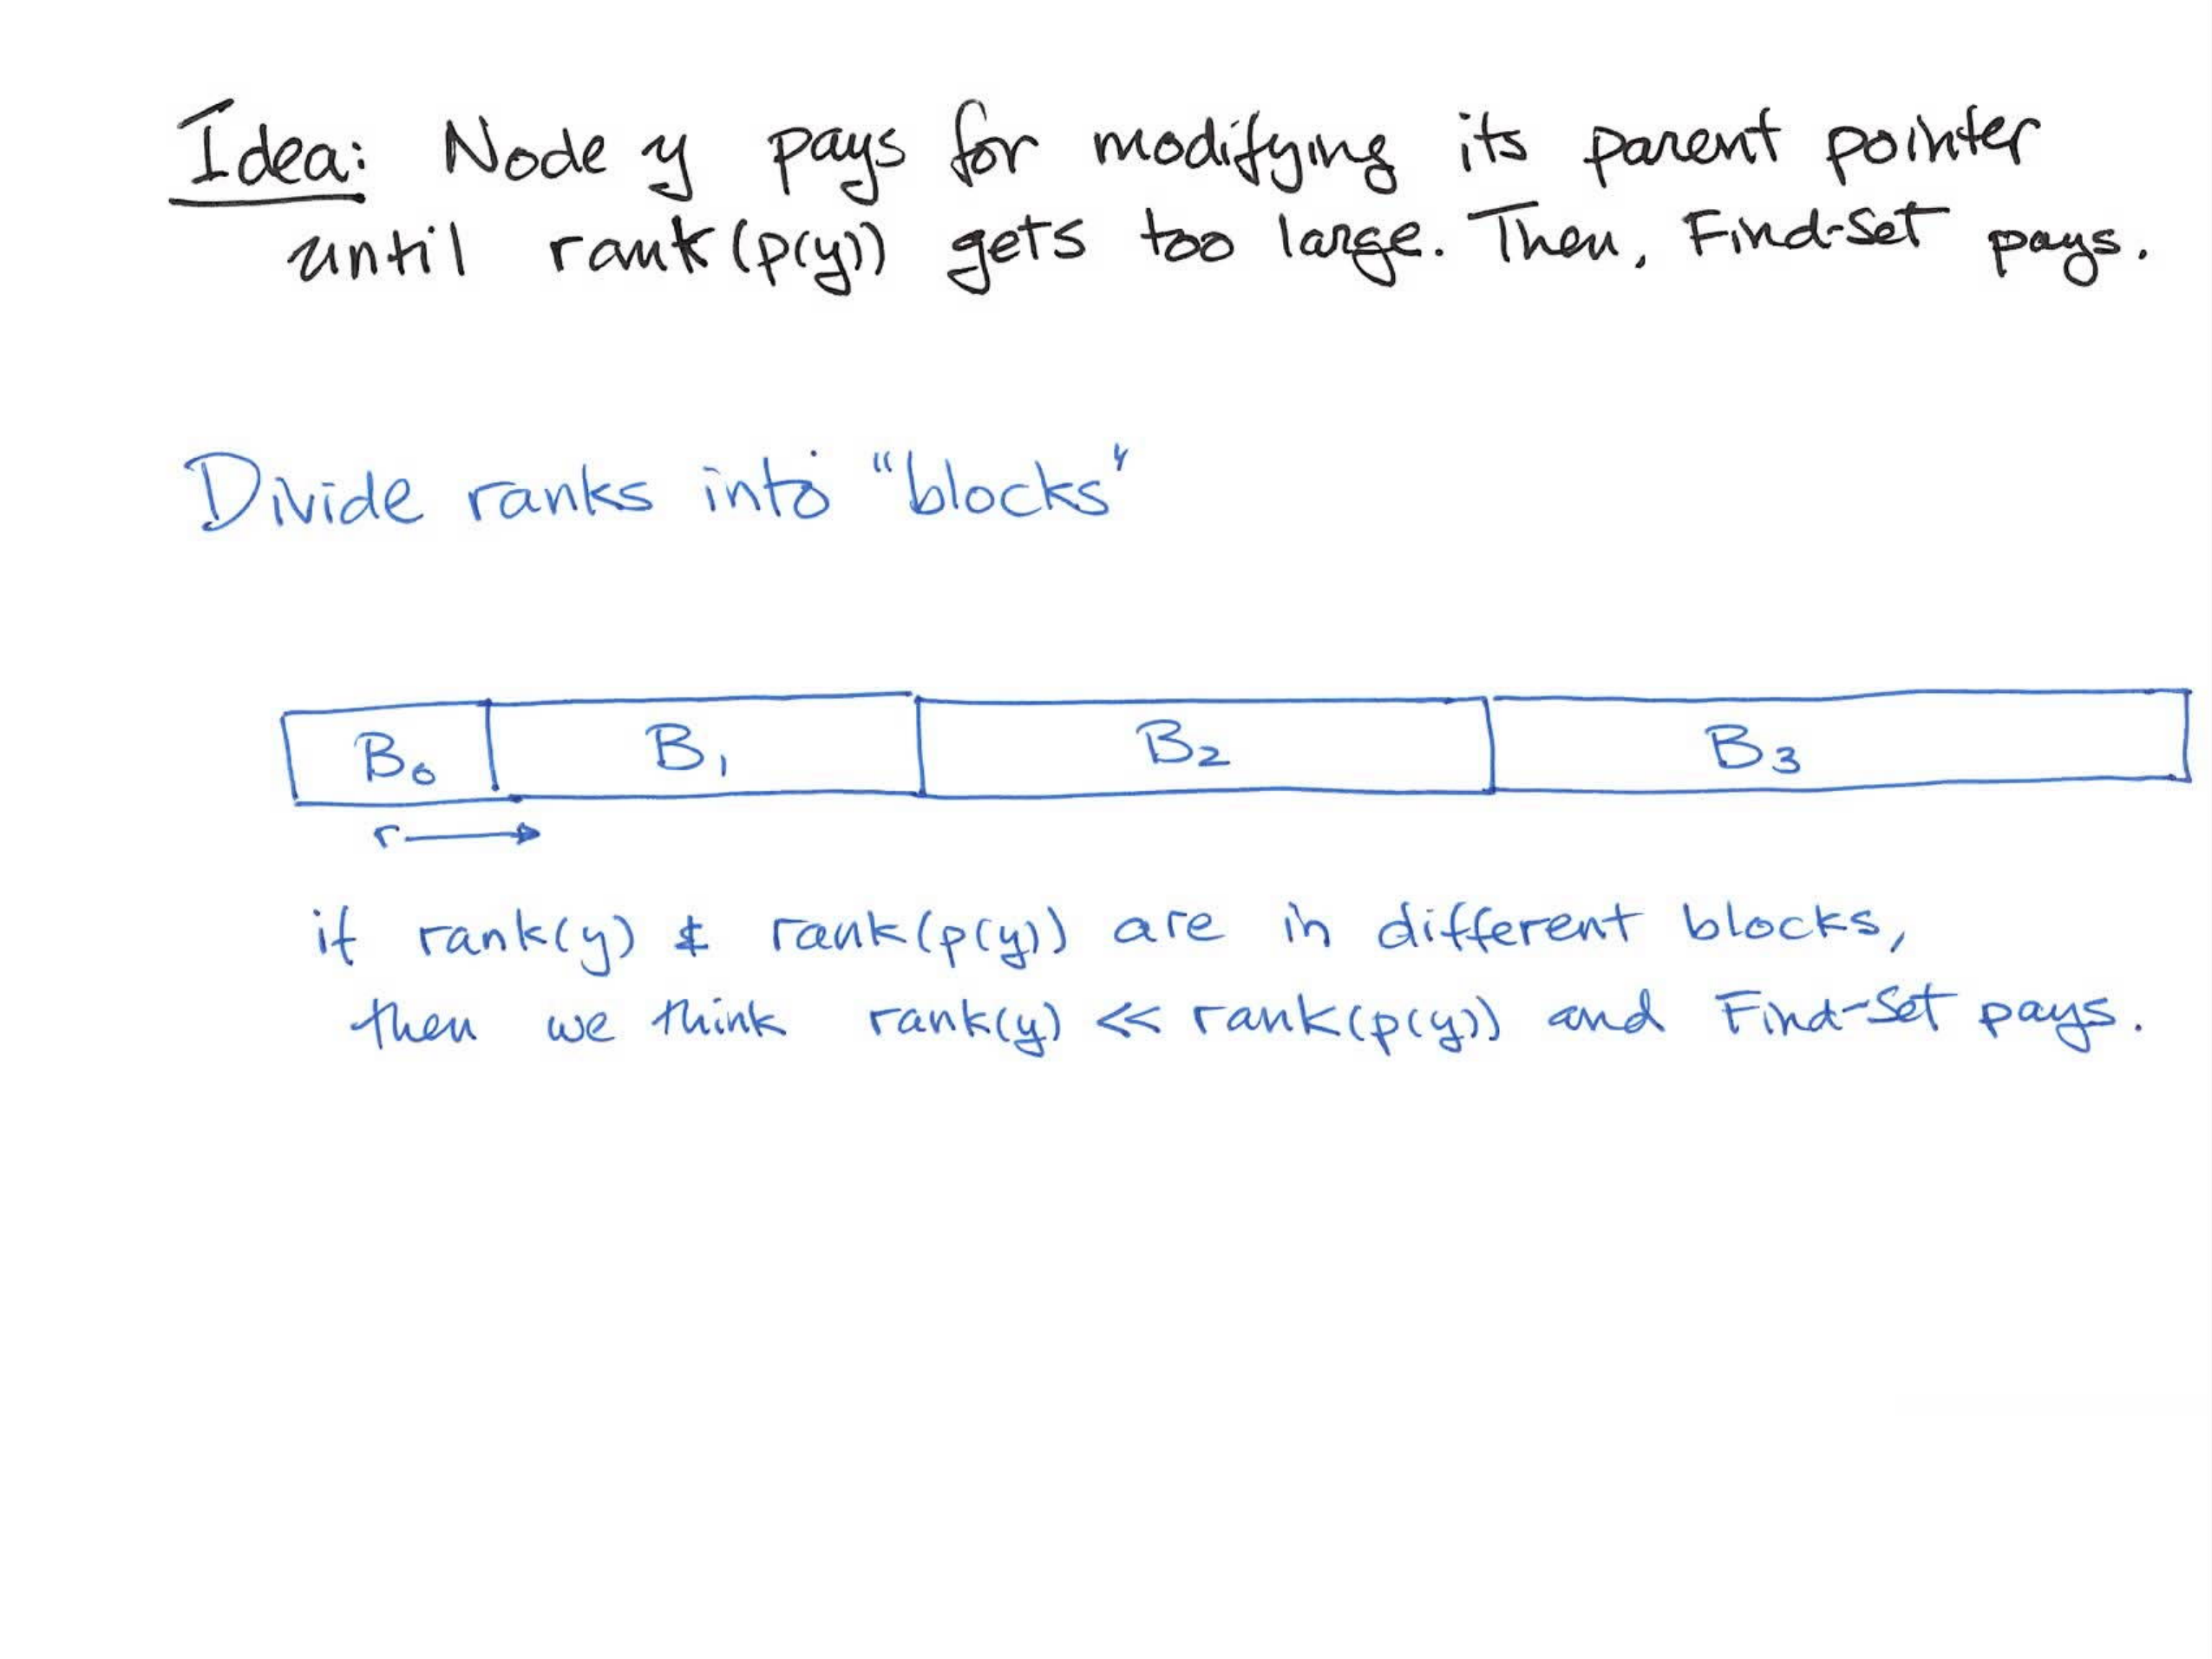 Idea: Node y pays for modifying its parent pointer
until rank(p(y)) gets too large. Then, Find-Set pays.
Divide ranks into "blocks"
B₀ B₁ B₂ B₃
r →
if rank(y) & rank(p(y)) are in different blocks,
then we think rank(y) << rank(p(y)) and Find-Set pays.